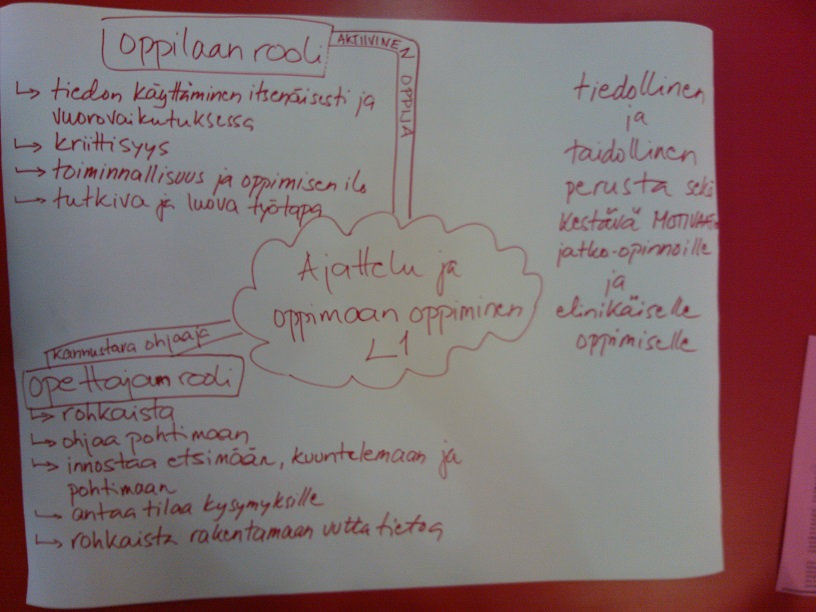 oppilaan rooli
AKTIIVINEN OPPIJA
↳ tiedon käyttäminen itsenäisesti ja
vuorovaikutuksessa
↳ kriittisyys
↳ toiminnallisuus ja oppimisen ilo
↳ tutkiva ja luova työtapa
Ajattelu ja
oppimaan oppiminen
L1
kannustava ohjaaja
opettajan rooli
↳ rohkaista
↳ ohjaa pohtimaan
↳ innostaa etsimään, kuuntelemaan ja
pohtimaan
↳ antaa tilaa kysymyksille
↳ rohkaista rakentamaan uutta tietoa
tiedollinen
ja
taidollinen
perusta sekä
kestävä MOTIVAATIO
jatko-opinnoille
ja
elinikäiselle
oppimiselle